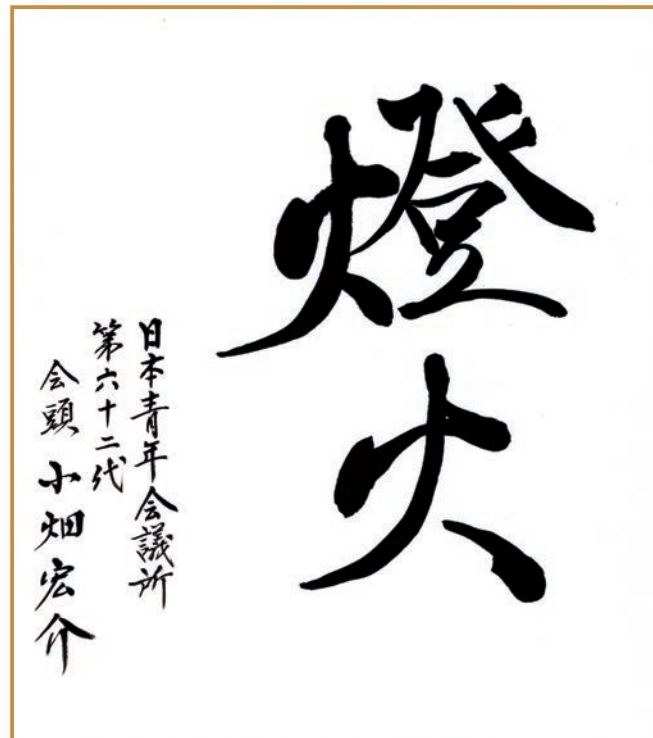 燈火
日本青年会議所
第六十二代
会頭 小畑宏介